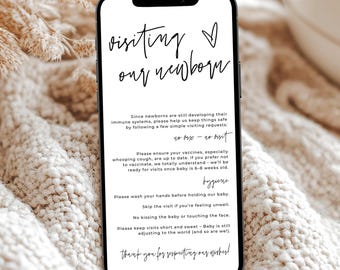 visiting
our newborn
Since newborns are still developing their
immune systems, please help us keep things safe
by following a few simple visiting requests.
no vax – no visit
Please ensure your vaccines, especially
whooping cough, are up to date. If you prefer not
to vaccinate, we totally understand – we'll be
ready for visits once baby is 6-8 weeks old.
hygiene
Please wash your hands before holding our baby.
Skip the visit if you're feeling unwell.
No kissing the baby or touching the face.
Please keep visits short and sweet – Baby is still
adjusting to the world (and so are we).
thank you for respecting our wishes!